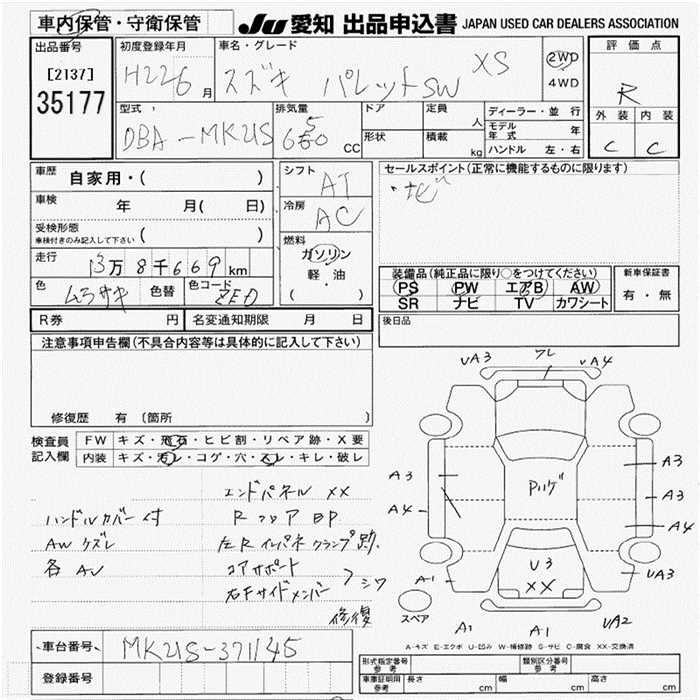 車内保管・守衛保管
JU 愛知 出品申込書 JAPAN USED CAR DEALERS ASSOCIATION
出品番号
[2137]
35177
初度登録年月
H22 6 月
車名・グレード
スズキ パレットSW XS
2WD
4WD
評価点
R
外装 内装
C C
型式
DBA-MK21S
排気量
CC
ドア
形状
定員 人
積載 kg
ディーラー・並行
モデル年式 年
ハンドル 左・右
車歴 自家用・( )
車検 年 月( 日)
受検形態
車検付きのみ記入して下さい ( )
走行 13万8千669km
色 ムラサキ 色替 色コード ZED
シフト
AT
冷房
AC
燃料
ガソリン
軽・油
( ・ )
セールスポイント(正常に機能するものに限ります)
・ナビ
装備品(純正品に限り○をつけてください)
PS PW エアB AW
SR ナビ TV カワシート
新車保証書
有・無
R券 円 名変通知期限 月 日
後日品
注意事項申告欄(不具合内容等は具体的に記入して下さい)
修復歴 有 〔箇所 〕
検査員記入欄
FW キズ・飛石・ヒビ割・リペア跡・X要
内装 キズ・汚レ・コゲ・穴・スレ・キレ・破レ
エンドパネル XX
ハンドルカバー付 Rフロア BP
AWクズレ 左Rインパネクランプ跡
各AU コアサポート
右Fサイドメンバー シワ
修復
UA3 ワレ UA4
A3 A3
A4 A3
A4
Pハゲ
U3
XX
A1 UA3
スペア
A1 A1 UA2
A-キズ E-エクボ U-凹み W-補修跡 S-サビ C-腐食 XX-交換済
車台番号 MK21S-371145
登録番号
形式指定番号 参考
類別区分番号 参考
車庫証明用 参考 長さ cm 幅 cm 高さ cm